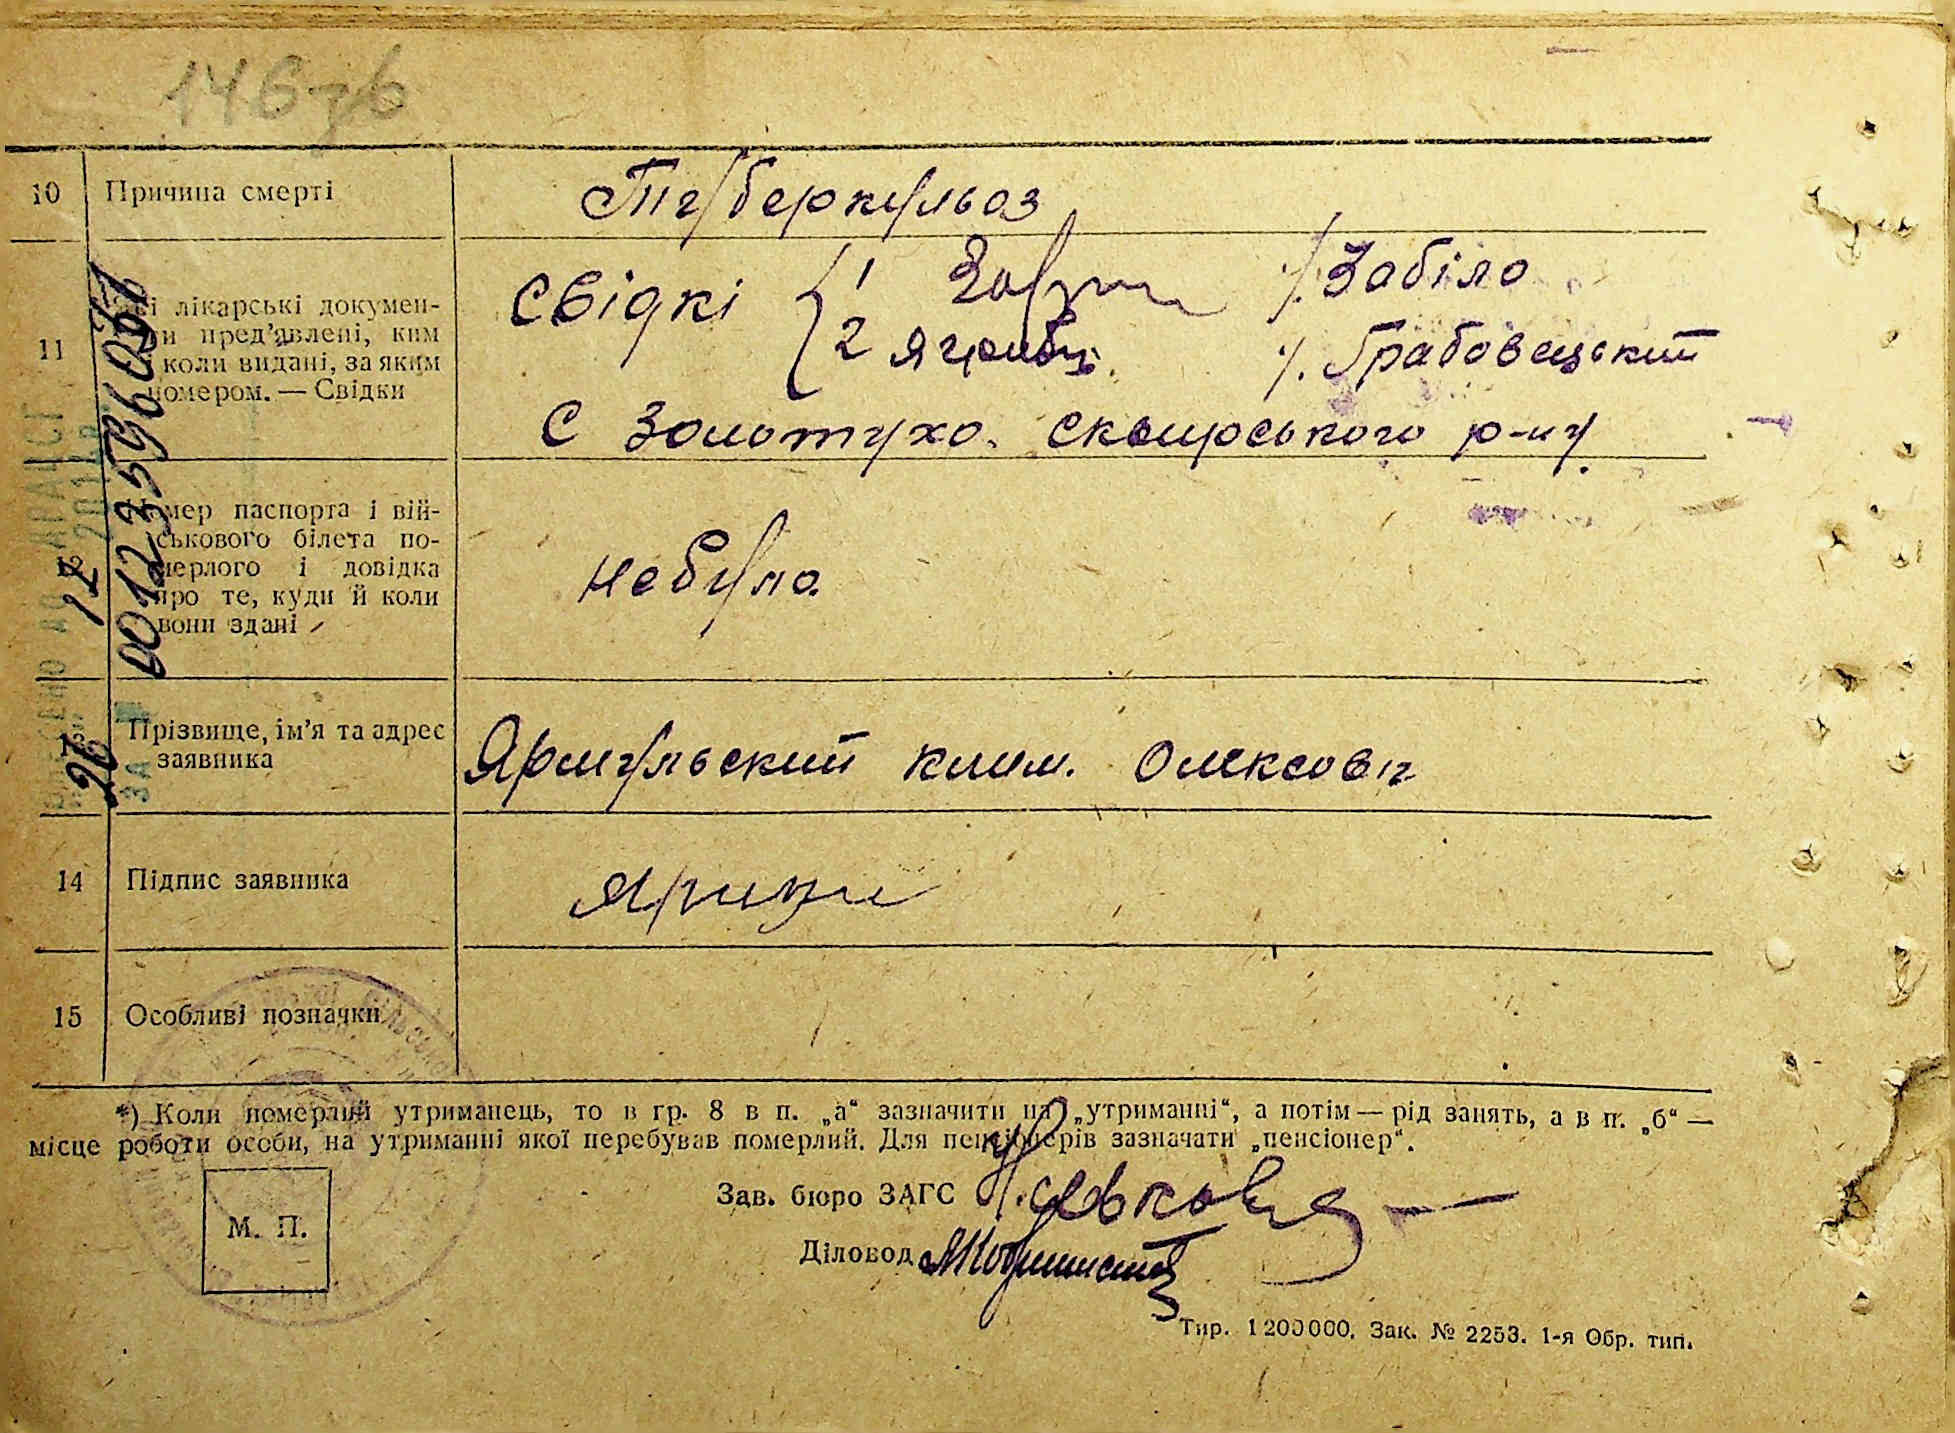 146зв
10 Причина смерті Туберкульоз
11 лікарські докумен-
пред’явлені, ким
коли видані, за яким
номером. — Свідки
Свідкі { 1 /. Забіло
2 /. Грабовецький
с Золотуха. сквирського р-ну
12 Номер паспорта і вій-
ськового білета по-
мерлого і довідка
про те, куди й коли
вони здані
небула
13 Прізвище, ім’я та адрес
заявника
Ярмульский клим. Олексови
14 Підпис заявника
15 Особливі позначки
00123596027
12
26
*) Коли померлий утриманець, то в гр. 8 в п. „а“ зазначити на „утриманні“, а потім — рід занять, а в п. „б“ —
місце роботи особи, на утриманні якої перебував померлий. Для пенсіонерів зазначати „пенсіонер“.
Зав. бюро ЗАГС
М. П.
Діловод
Тир. 1200000. Зак. № 2253. 1-я Обр. тип.